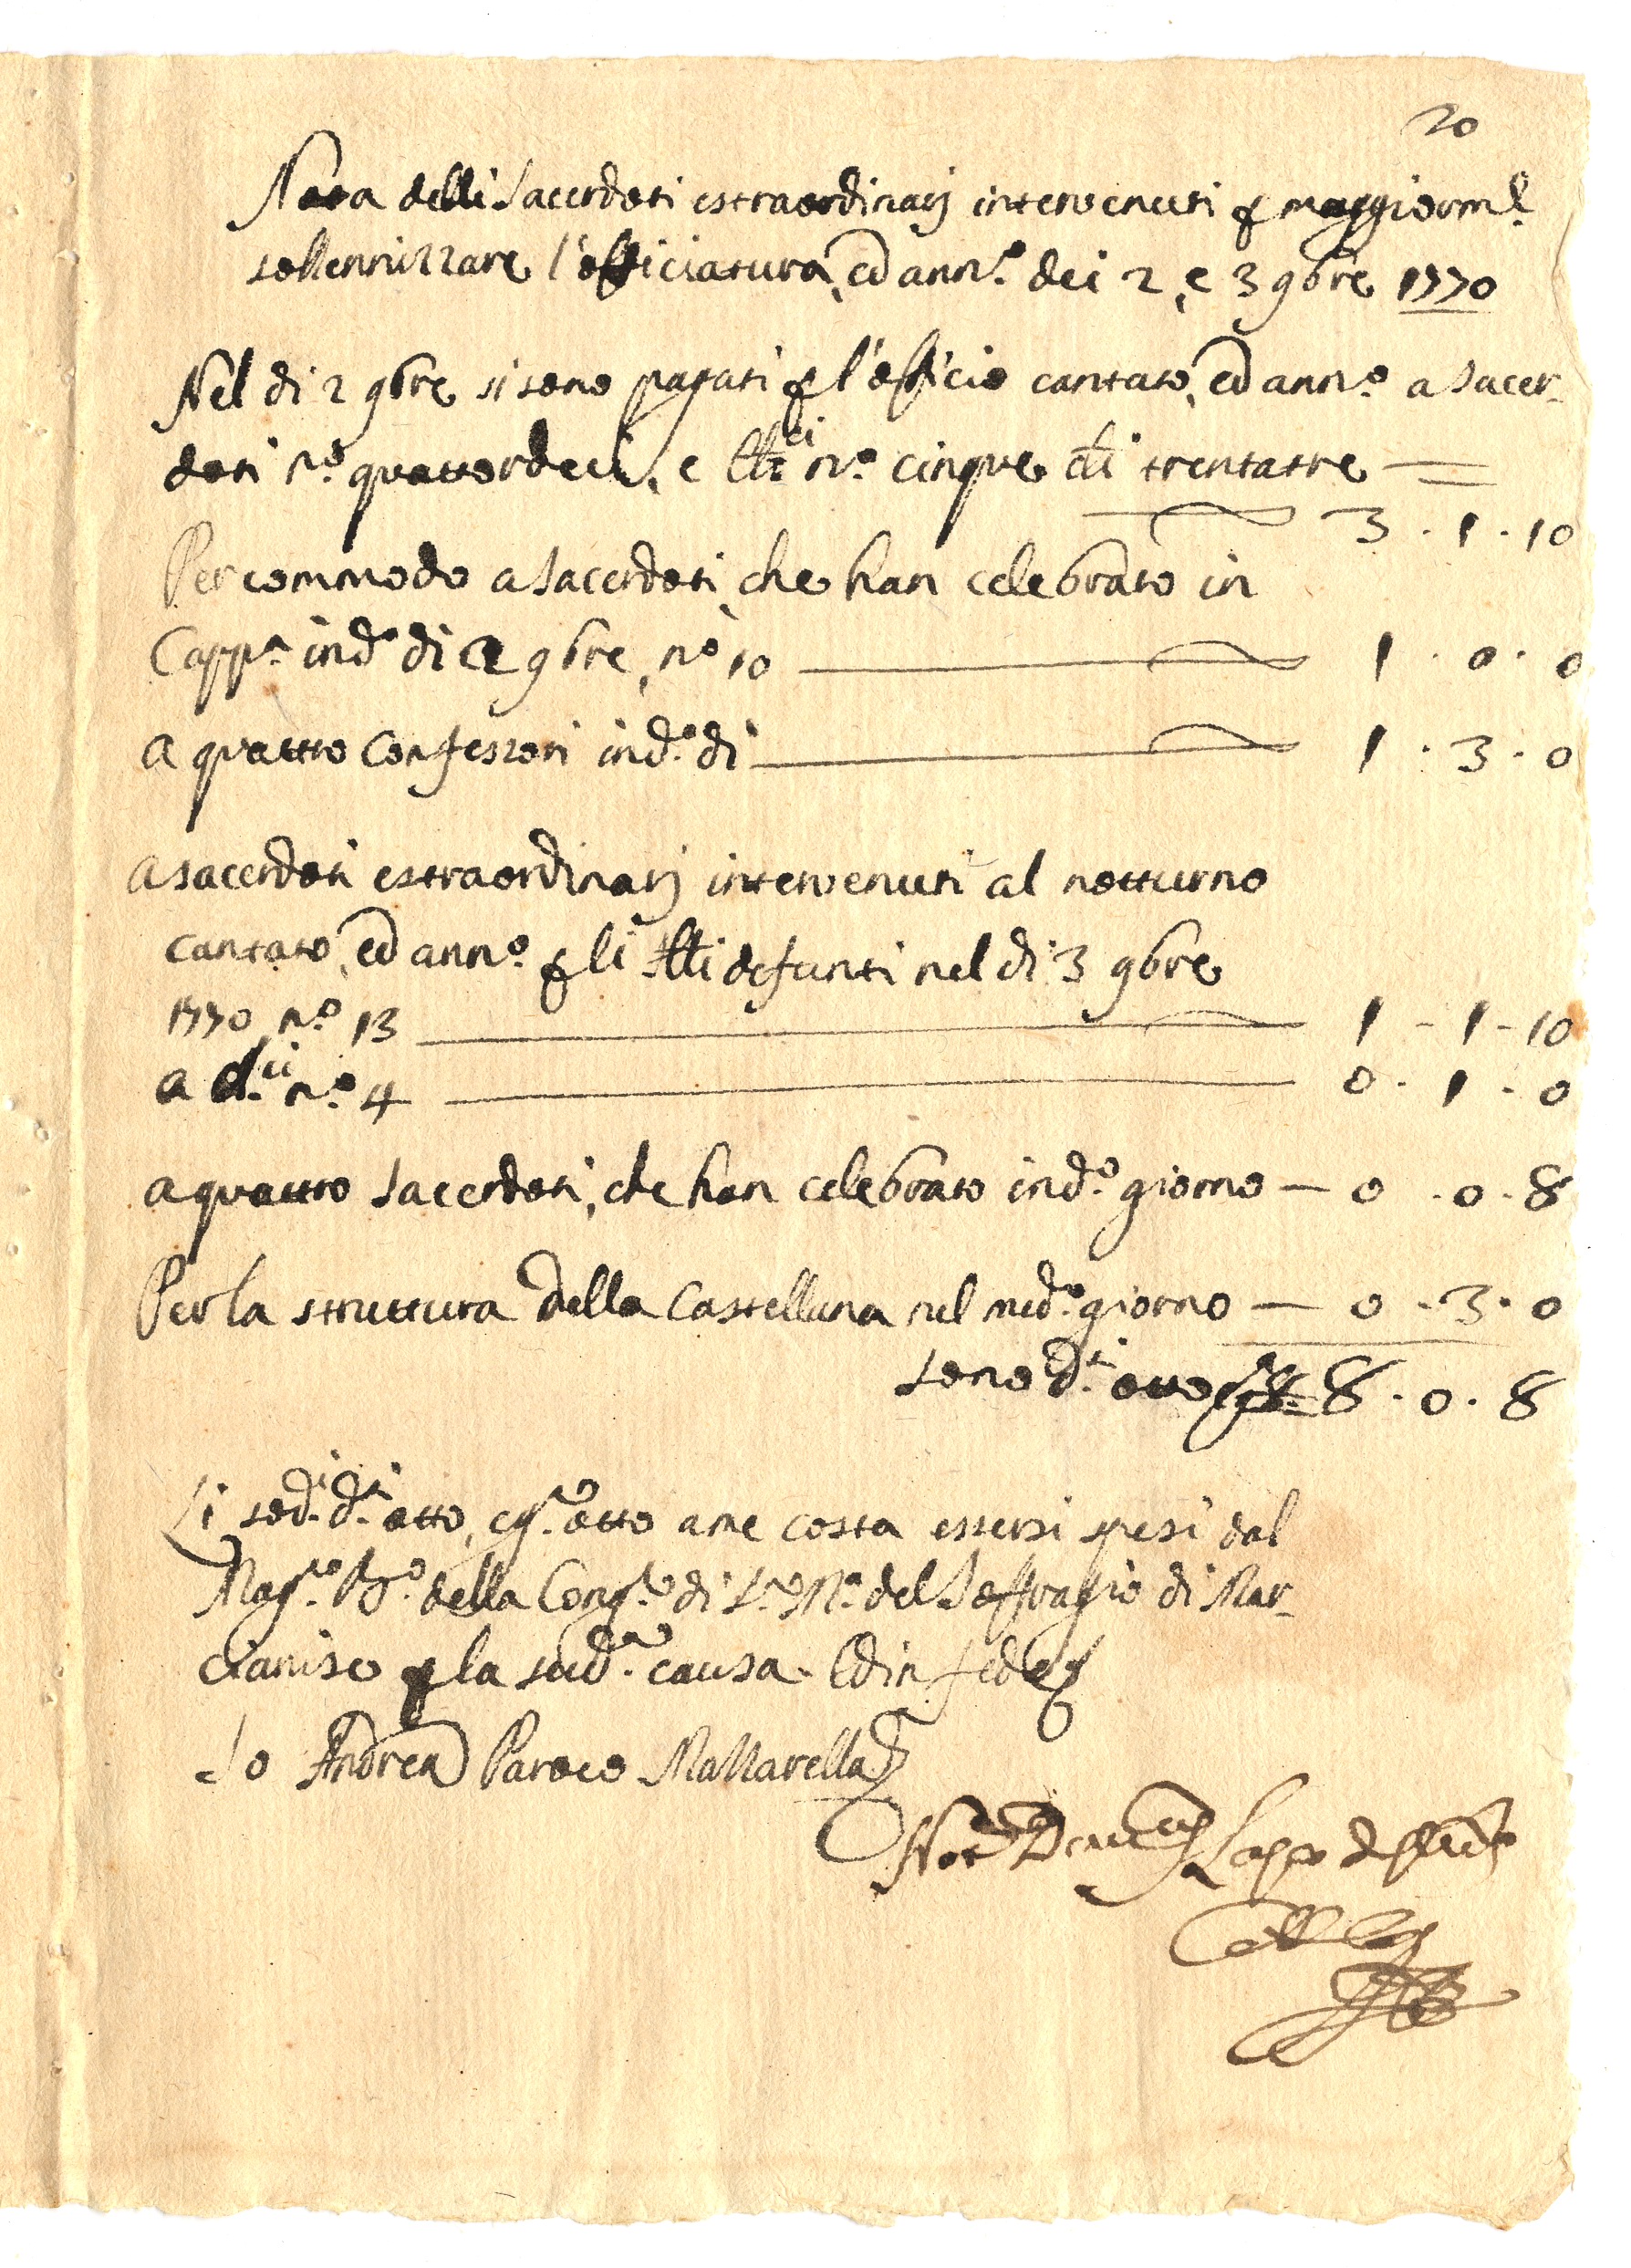 20
Nota delli Sacerdoti estraordinarj intervenuti p maggiorm.e
sollennizzare l'officiatura, ed ann.o dei 2, e 3 9bre 1770
Nel di 2 9bre si sono pagati p l'officio cantato, ed ann.o a Sacer-
doti n.o quattordeci, e n.o cinque trentatre
3 . 1 . 10
Per commodo a Sacerdoti, che han celebrato in
Capp.a in d.o di 2 9bre, n.o 10 1 . 0 . 0
a quattro Confessori in d.o di 1 . 3 . 0
a sacerdoti estraordinarj intervenuti al notturno
cantato, ed ann.o p li defunti nel di 3 9bre
1770 n.o 13 1 - 1 - 10
a d.ci n.o 4 0 . 1 . 0
a quattro Sacerdoti, che han celebrato in d.o giorno — 0 . 0 . 8
Per la struttura della Castellana nel med.o giorno — 0 . 3 . 0
sono d.ti otto 8 . 0 . 8
Li sod.i d.ti otto, e g.a otto a me costa essersi spesi dal
Mag.co della Cong.ne di S.a M.a del Soffragio di Mar-
cianise p la sud.a causa. Ed in fede
Io Andrea Paroco Mattarella
Not.